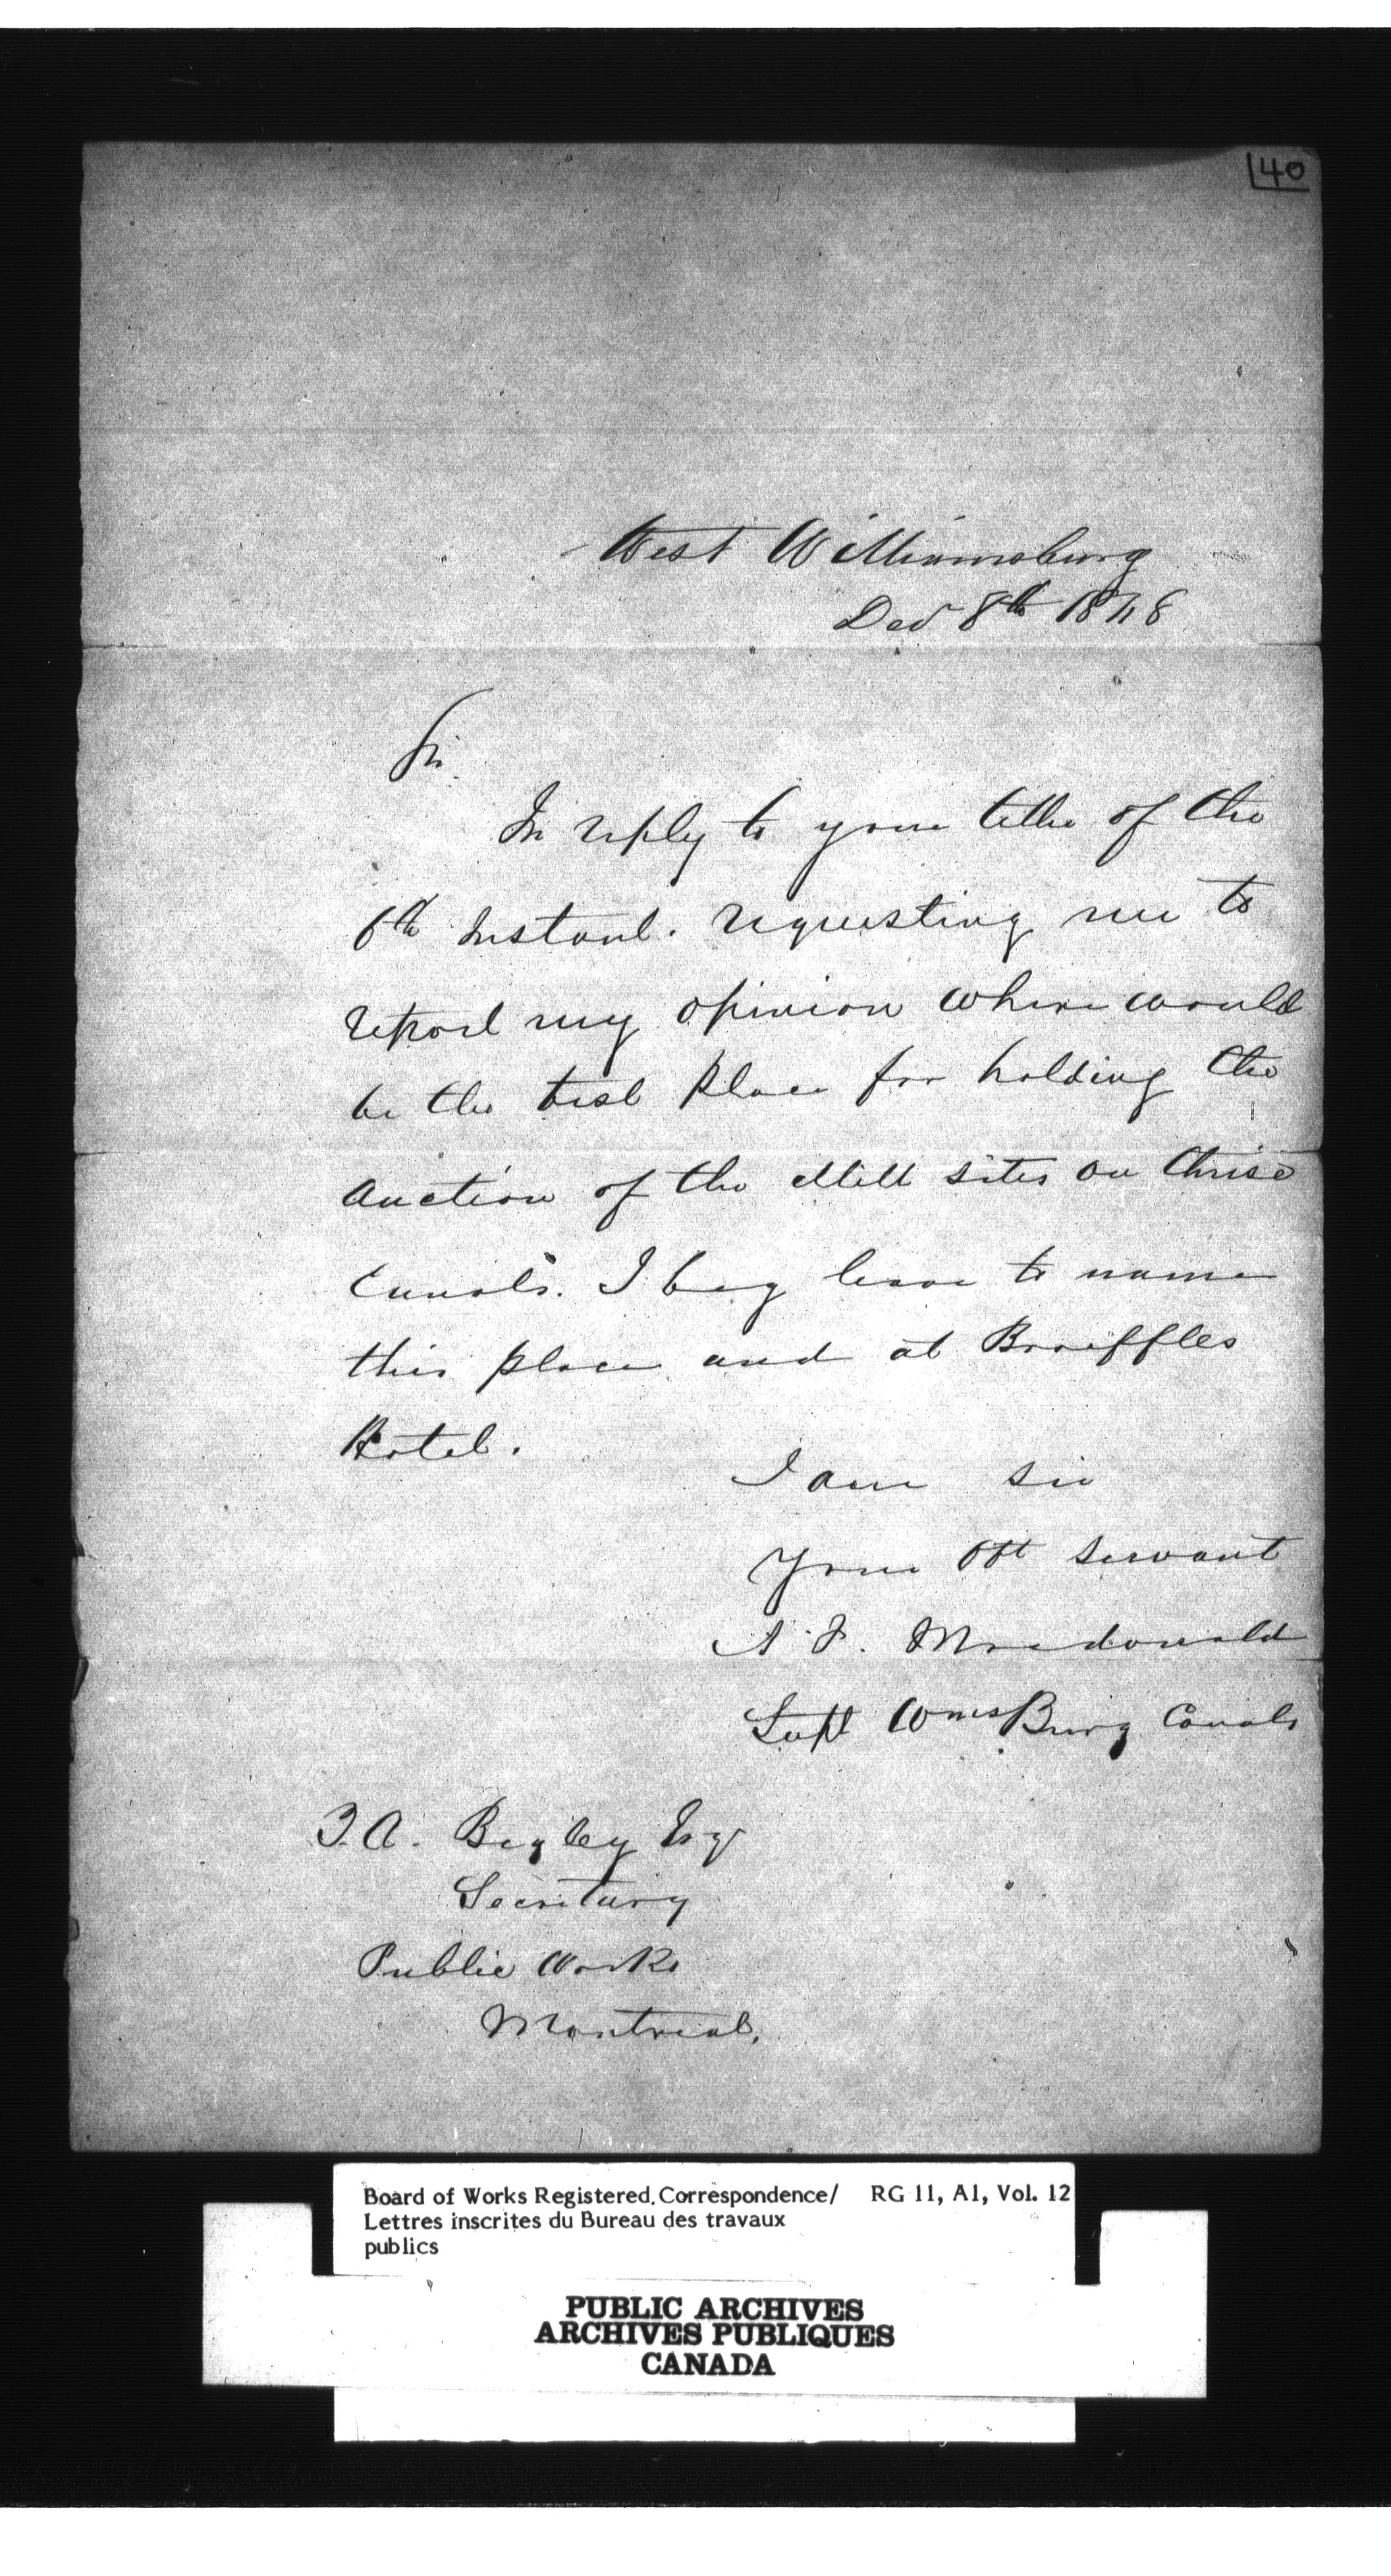 40
West Williamsburg
Dec 8th 1848
Sir
In reply to your letter of the
6th Instant. requesting me to
report my opinion where would
be the best place for holding the
auction of the Mill sites on these
Canals. I beg leave to name
this place and at
Hotel.
I am Sir
Your Obt Servant
Macdonald
Supt WmsBurg Canals
T.A. Begley Esqr
Secretary
Public Works
Montreal.
Board of Works Registered Correspondence/ RG 11, A1, Vol. 12
Lettres inscrites du Bureau des travaux
publics
PUBLIC ARCHIVES
ARCHIVES PUBLIQUES
CANADA